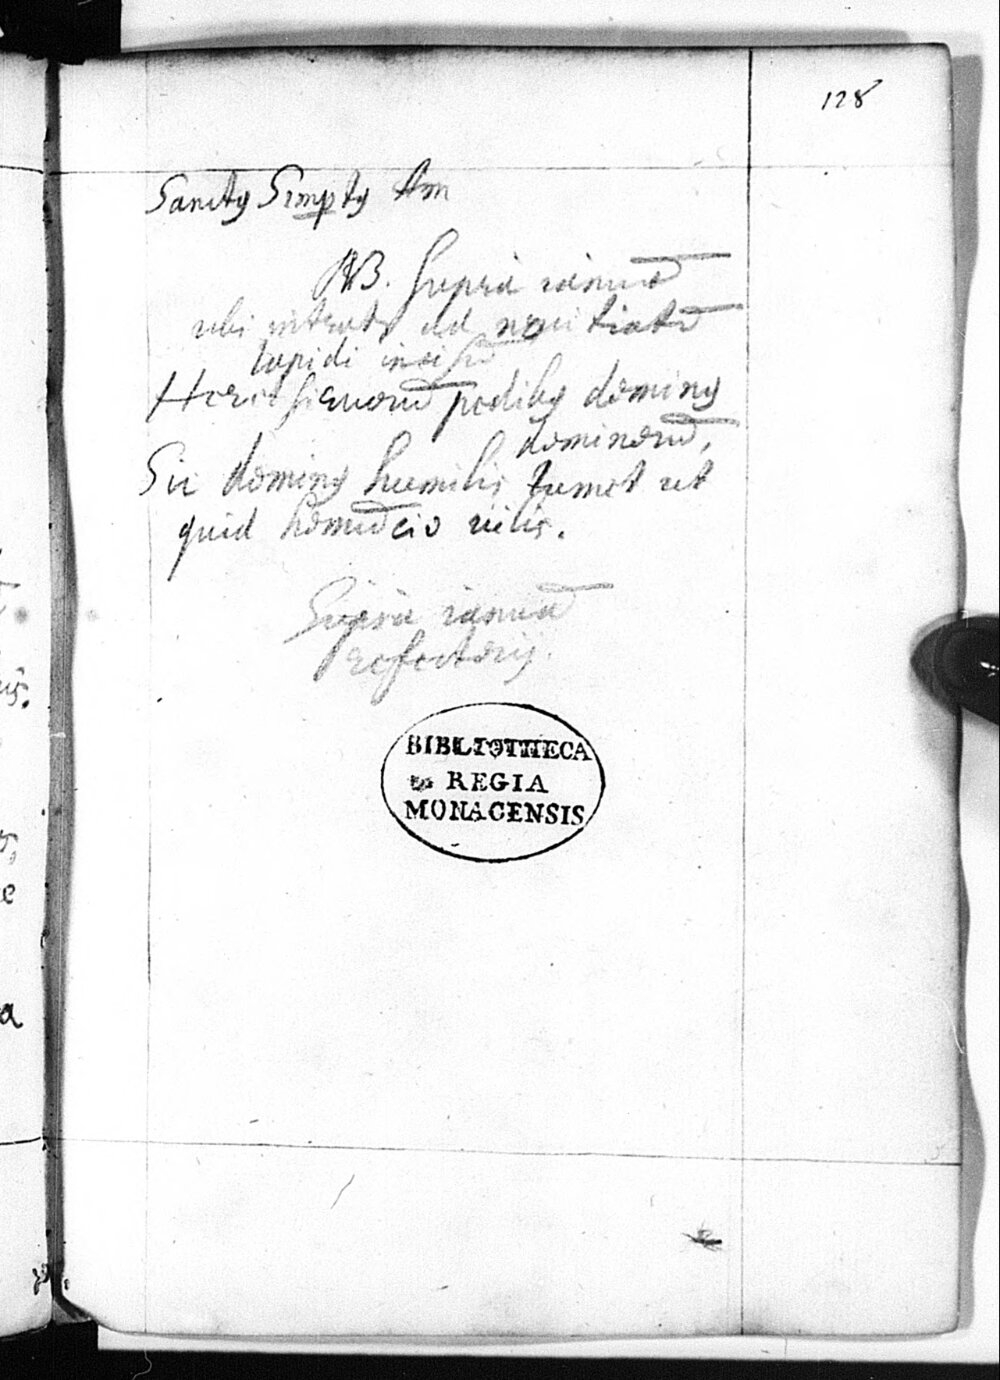 128
Sanctus Simptus Am
NB. Supra ianuã
ubi intratr ad nouitiatũ
lapidi incisũ
Heret seruorũ pedibus dominus
dominorũ,
Sic dominus humilis tumet ut
quid homũcio uilis.
Supra ianuã
refectorij.
BIBLIOTHECA
REGIA
MONACENSIS